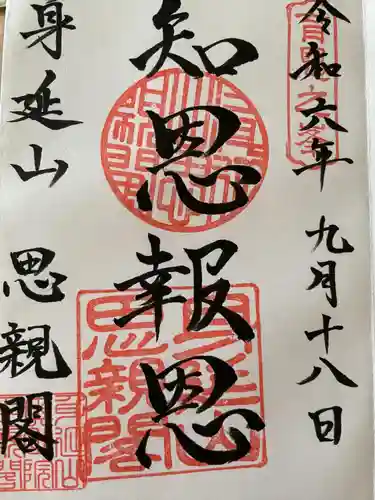 令和六年 九月十八日
知恩報恩
身延山 思親閣
身延山
思親閣